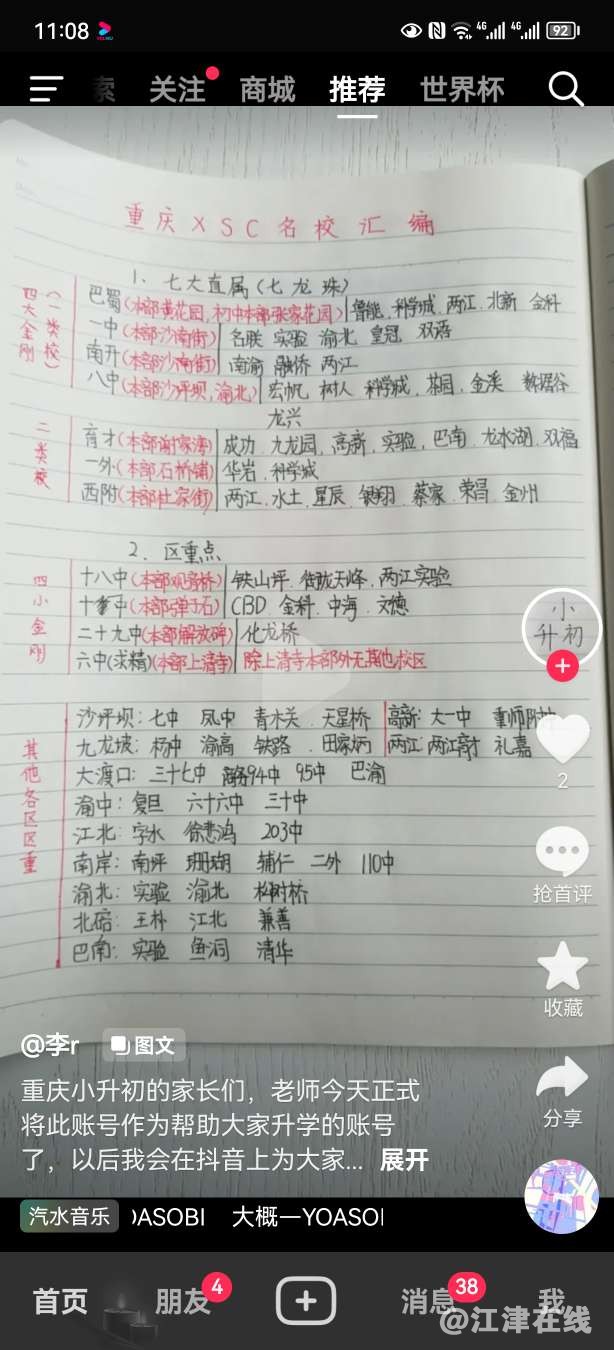 11:08
4G 4G 92
关注 商城 推荐 世界杯
重庆XSC名校汇编
1、七大直属(七龙珠)
四大金刚(一类校)
巴蜀(本部黄花园,初中本部张家花园) 鲁能、科学城、两江、北新、金科
一中(本部沙南街) 名联 实验 渝北 皇冠 双语
南开(本部沙南街) 南渝 融侨 两江
八中(本部沙坪坝,渝北) 宏帆、树人、科学城、茶园、金溪 数据谷
龙兴
二类校
育才(本部谢家湾) 成功、九龙园、高新、实验、巴南、龙水湖、双福
一外(本部石桥铺) 华岩、科学城
西附(本部杜家街) 两江、水土、星辰、银翔、蔡家、荣昌、金州
2、区重点
四小金刚
十八中(本部观音桥) 铁山坪、御珑天峰、两江实验
十一中(本部弹子石) CBD、金科、中海、文德
二十九中(本部解放碑) 化龙桥
六中(求精)(本部上清寺) 除上清寺本部外无其他校区
其他各区区重
沙坪坝:七中 凤中 青木关、天星桥 高新:大一中 重师附中
九龙坡:杨中 渝高 铁路、田家炳 两江:两江育才 礼嘉
大渡口:三十七中 商务94中 95中 巴渝
渝中:复旦 六十六中 三十中
江北:字水 徐悲鸿 203中
南岸:南坪 珊瑚 辅仁 二外 110中
渝北:实验 渝北 松树桥
北碚:王朴 江北 兼善
巴南:实验 鱼洞 清华
小升初
2
抢首评
收藏
分享
@李r 图文
重庆小升初的家长们,老师今天正式
将此账号作为帮助大家升学的账号
了,以后我会在抖音上为大家... 展开
汽水音乐 OASOBI 大概一YOASOI
首页 朋友 4 消息 38 我
@江津在线